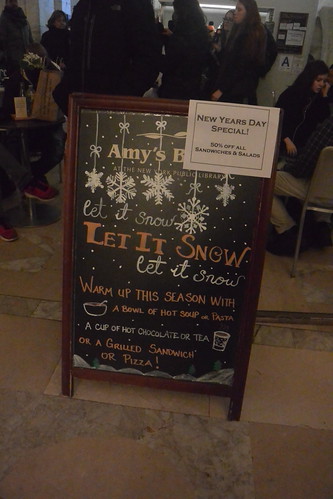 A
NEW YEARS DAY
SPECIAL!
50% OFF ALL
SANDWICHES & SALADS
Amy's
THE NEW YORK PUBLIC LIBRARY
let it snow
LET IT SNOW
let it snow
WARM UP THIS SEASON WITH
A BOWL OF HOT SOUP OR PASTA
A CUP OF HOT CHOCOLATE OR TEA
OR A GRILLED SANDWICH
OR PIZZA!